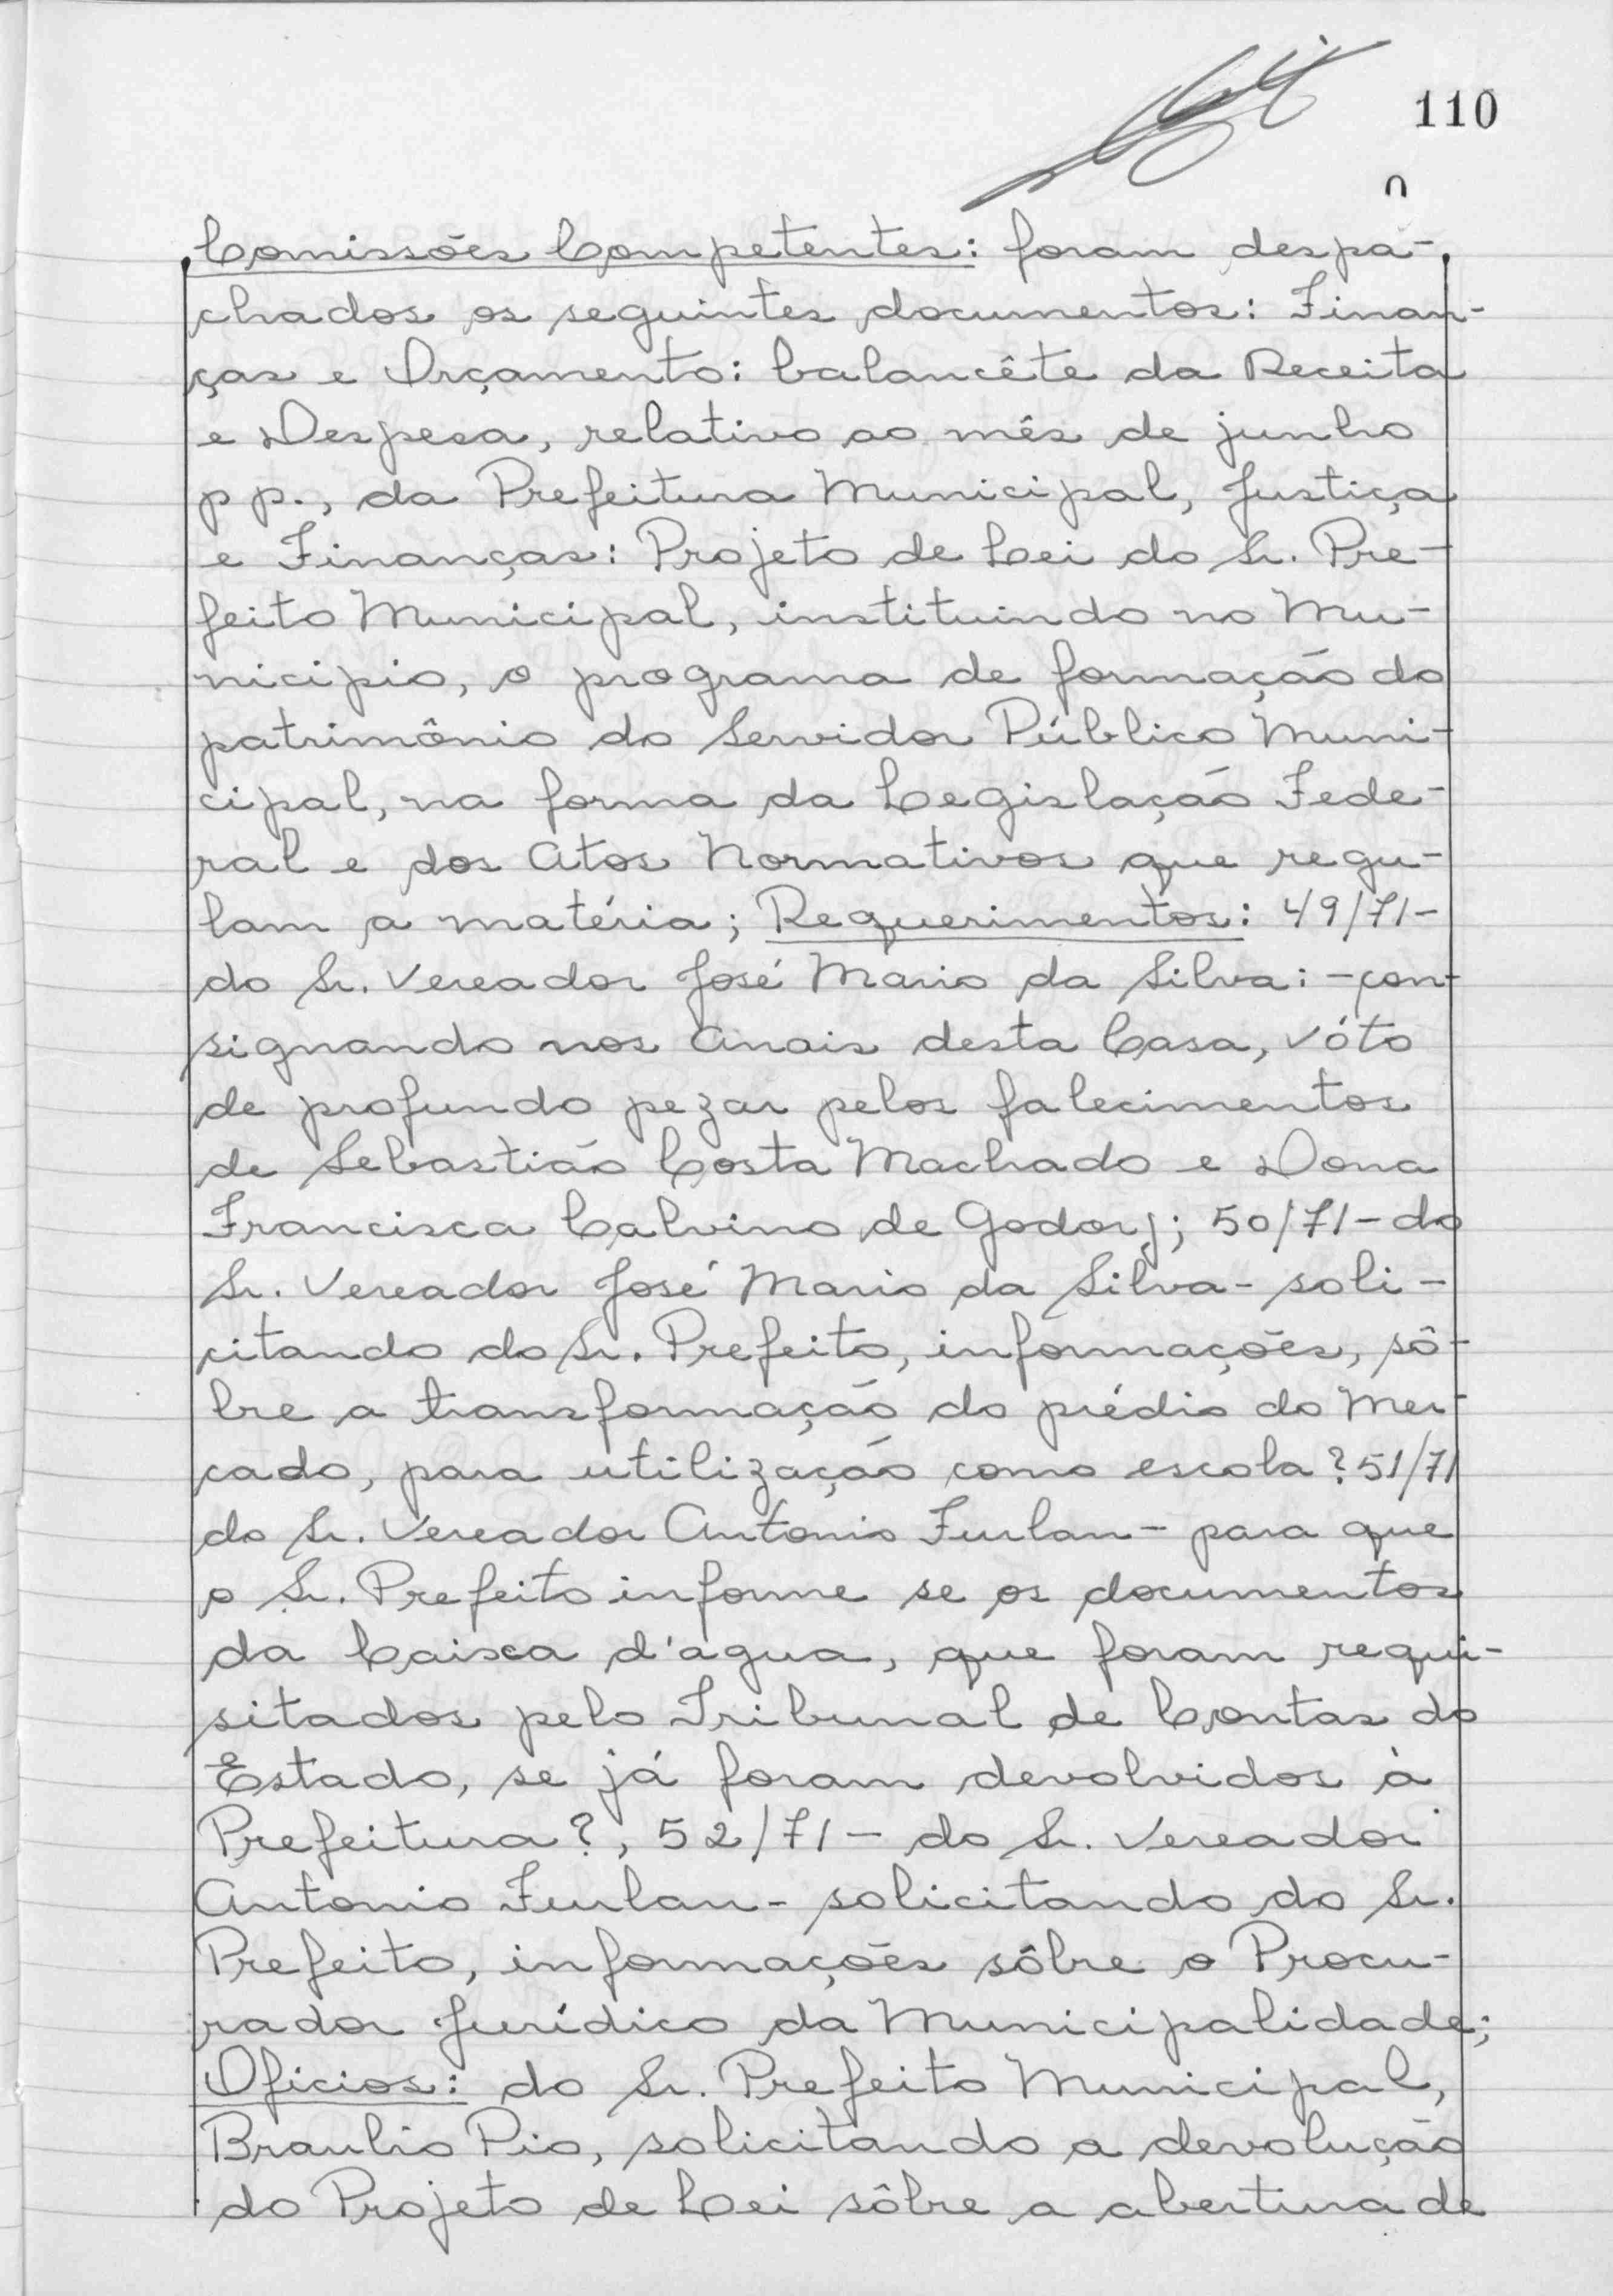 110
Comissões Competentes: foram despa-
chados os seguintes documentos: Finan-
ças e Orçamento: balancête da Receita
e Despesa, relativo ao mês de junho
p p., da Prefeitura Municipal, Justiça
e Finanças: Projeto de Lei do Sr. Pre-
feito Municipal, instituindo no Mu-
nicipio, o programa de formação do
patrimônio do Servidor Público Muni-
cipal, na forma da Legislação Fede-
ral e dos Atos Normativos que regu-
lam a matéria; Requerimentos: 49/71-
do Sr. Vereador José Mario da Silva: - con-
signando nos Anais desta Casa, vóto
de profundo pezar pelos falecimentos
de Sebastião Costa Machado e Dona
Francisca Calvino de Godoy; 50/71 - do
Sr. Vereador José Mario da Silva - soli-
citando do Sr. Prefeito, informações, sô-
bre a transformação do prédio do Mer-
cado, para utilização como escola? 51/71
do Sr. Vereador Antonio Furlan - para que
o Sr. Prefeito informe se os documentos
da Caixa d'agua, que foram requi-
sitados pelo Tribunal de Contas do
Estado, se já foram devolvidos à
Prefeitura?, 52/71 - do Sr. Vereador
Antonio Furlan - solicitando do Sr.
Prefeito, informações sôbre o Procu-
rador Jurídico da Municipalidade;
Oficios: do Sr. Prefeito Municipal,
Braulio Pio, solicitando a devolução
do Projeto de Lei sôbre a abertura de